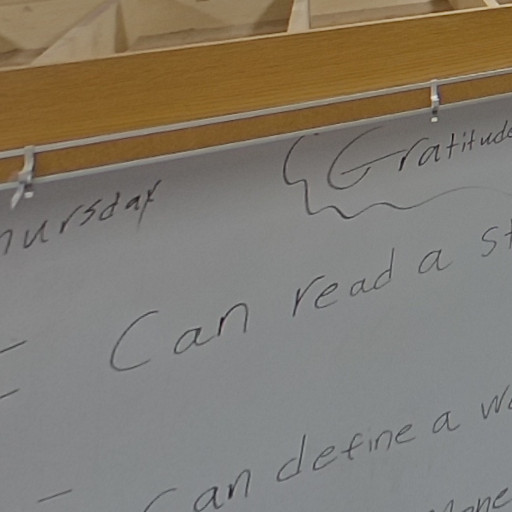 hursday Gratitude
Can read a st
Can define a wo